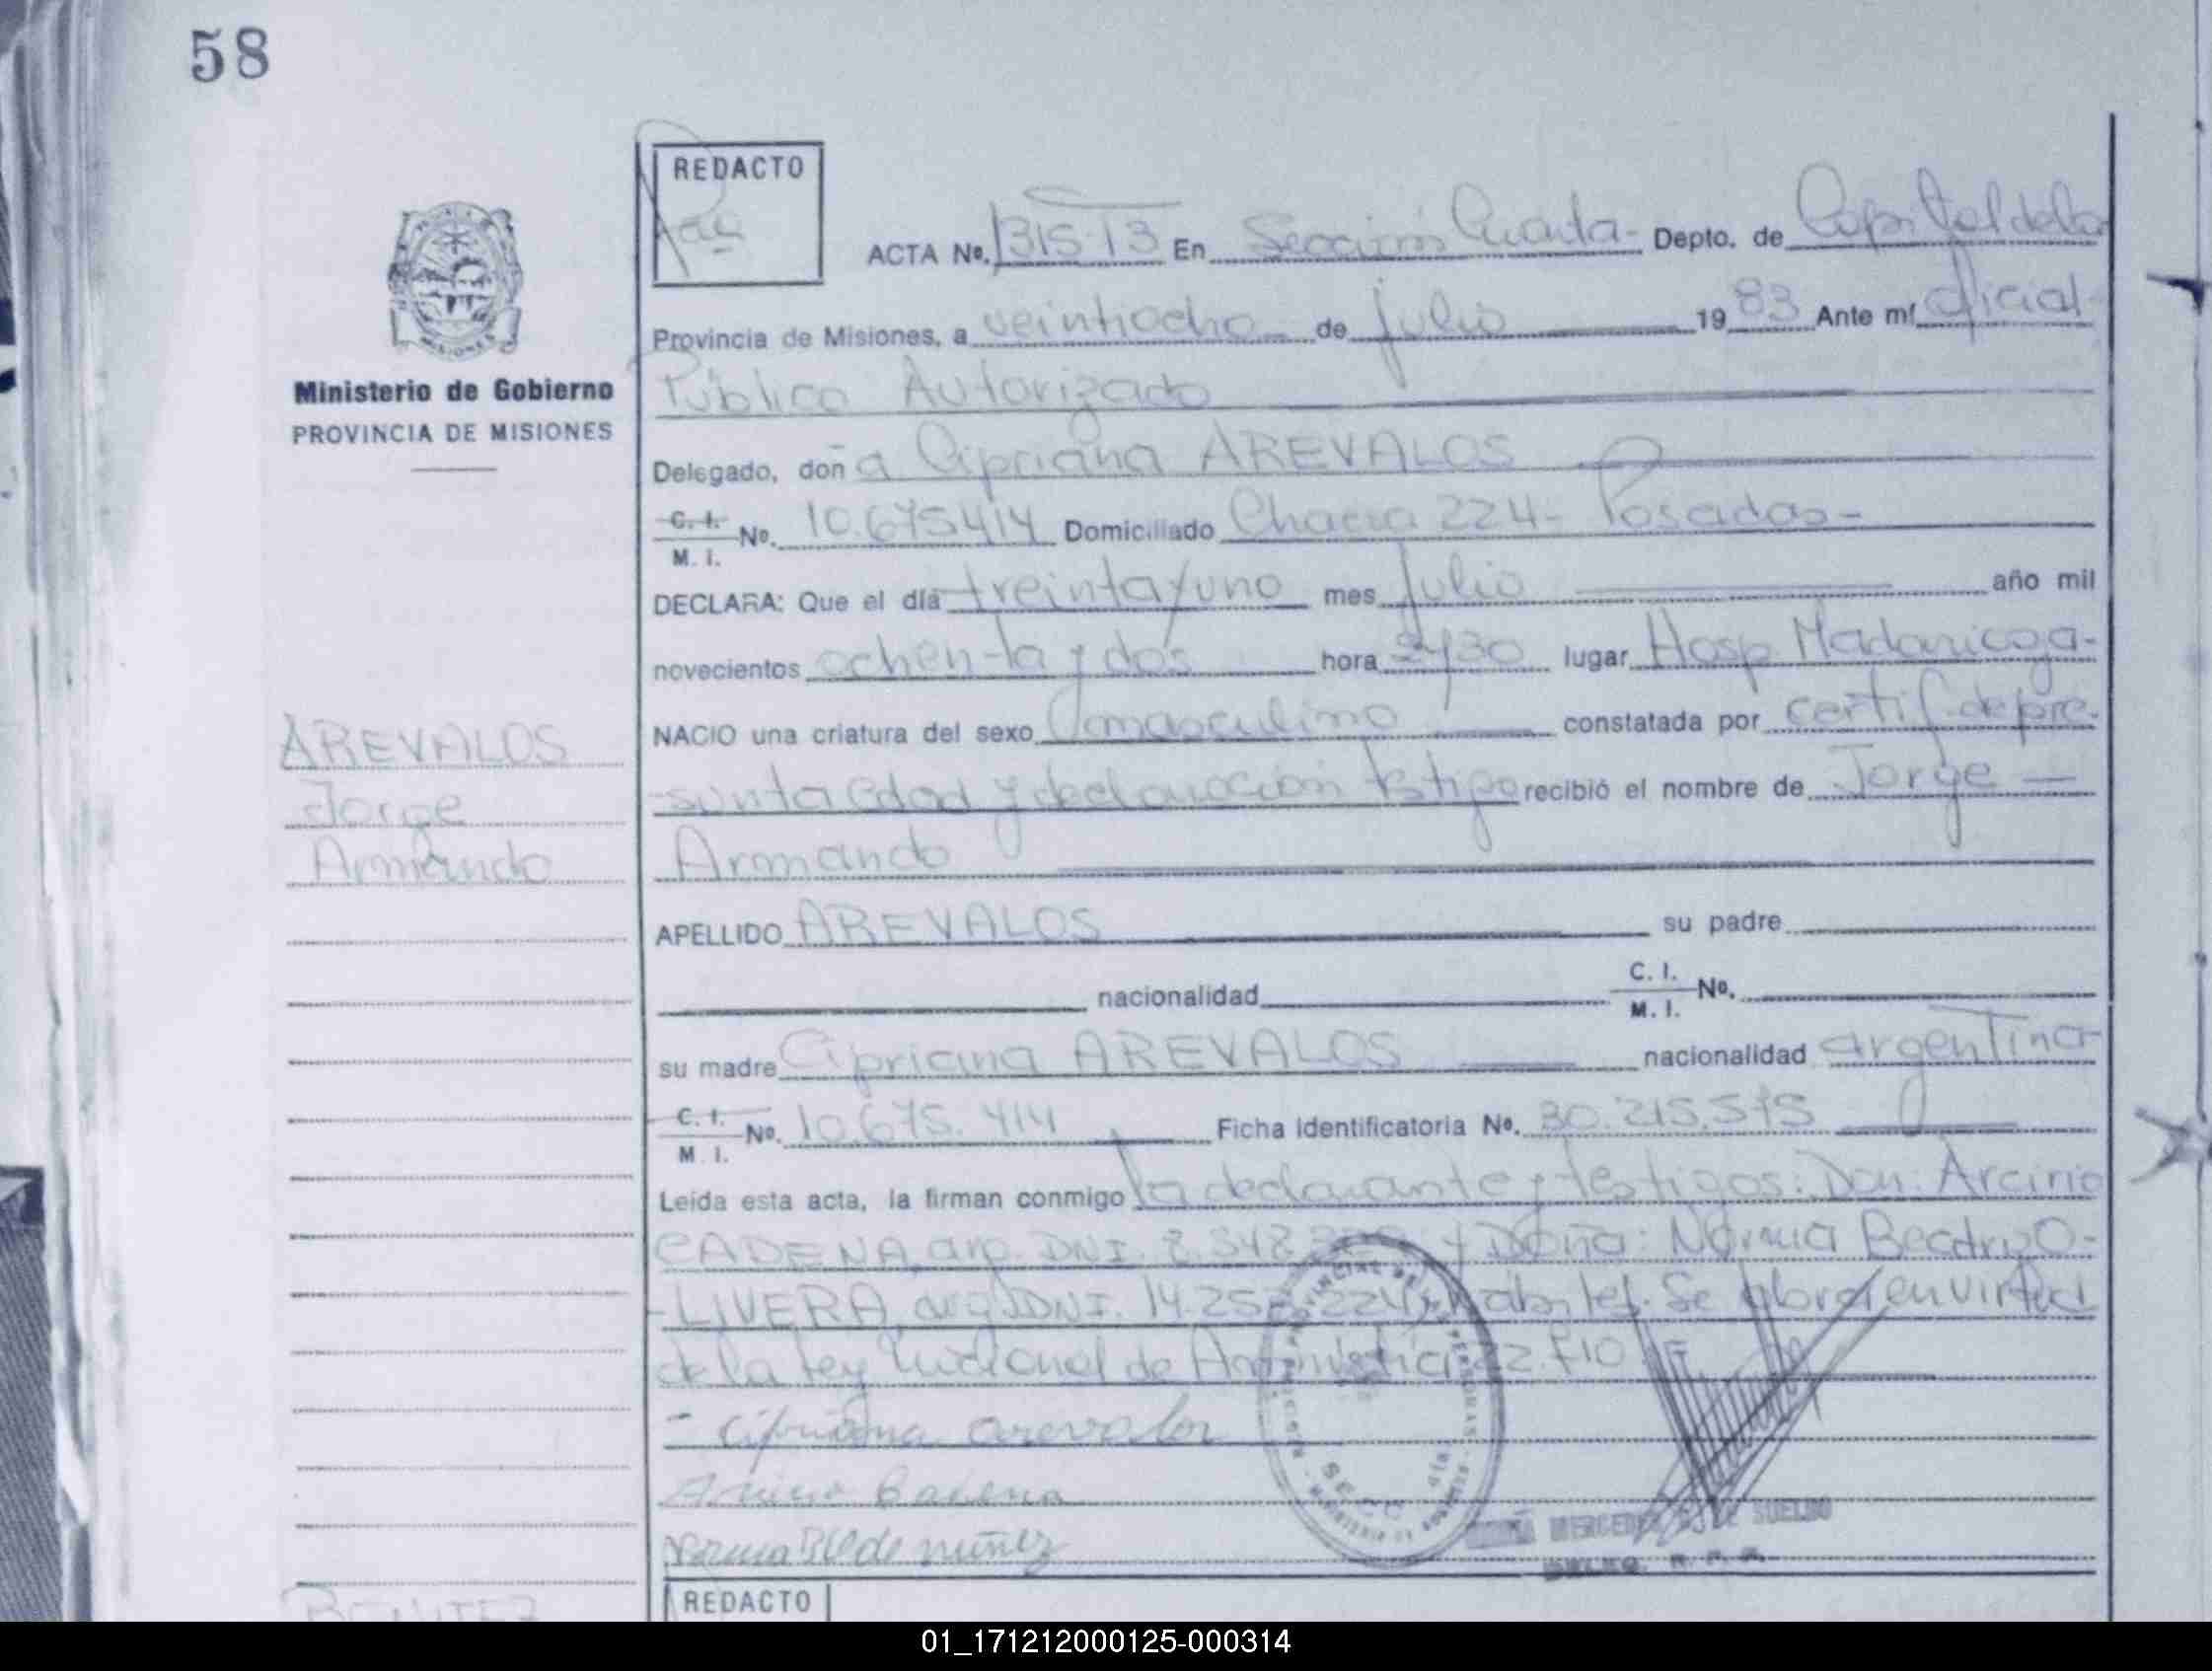 58
REDACTO
ACTA Nº. 1315 T3 En Sección Cuarta- Depto. de Capital de la
Provincia de Misiones, a veintiocho de julio 1983 Ante mí oficial
Público Autorizado
Ministerio de Gobierno
PROVINCIA DE MISIONES
Delegado, doña Cipriana AREVALOS
C. I. / M. I. Nº. 10.675414 Domiciliado Chacra 224- Posadas-
DECLARA: Que el día treinta y uno mes julio año mil
novecientos ochenta y dos hora lugar Hosp. Madariaga-
NACIO una criatura del sexo masculino constatada por certif. de pre-
-sunta edad y declaración testigo recibió el nombre de Jorge
Armando
AREVALOS
Jorge
Armando
APELLIDO AREVALOS su padre
nacionalidad C. I. / M. I. Nº.
su madre Cipriana AREVALOS nacionalidad argentina
C. I. / M. I. Nº. 10.675.414 Ficha Identificatoria Nº. 30.215.575
Leída esta acta, la firman conmigo la declarante y testigos: Don: Arcinio
CADENA, arg. DNI. y Doña: Norma Beatriz O-
-LIVERA, arg. DNI. Se labra en virtud
de la ley nacional de Amnistia
- Cipriana Arevalos
Cadena
Norma de nuñez
REDACTO
BENITEZ
01_171212000125-000314